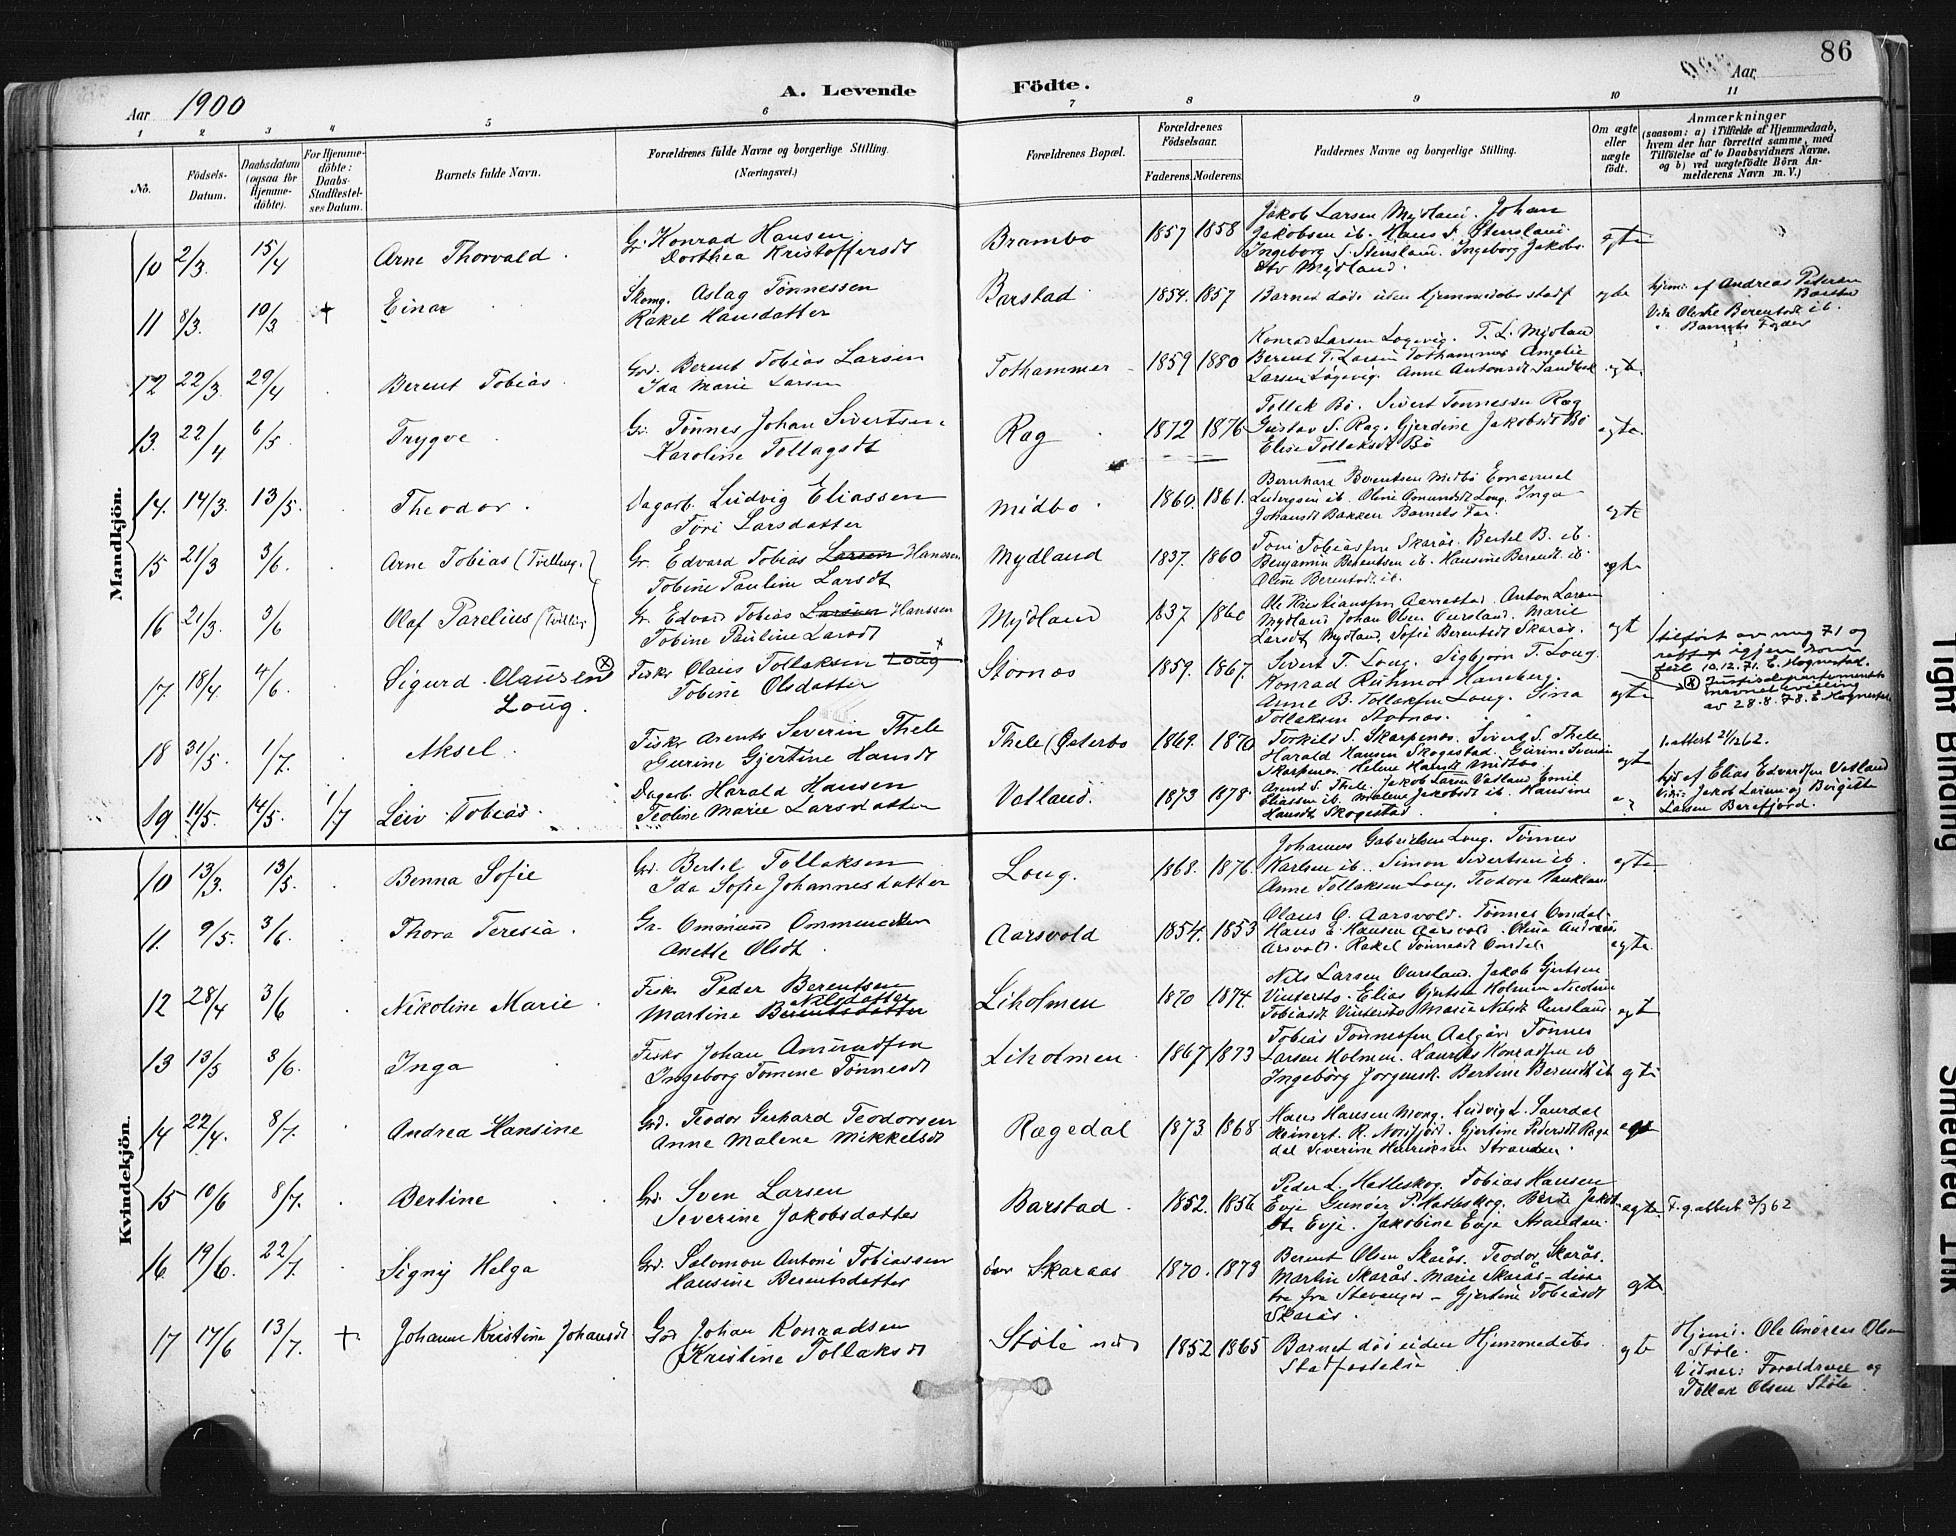 86
Aar 1900
A. Levende Födte.
Aar
1 2 3 4 5 6 7 8 9 10 11
No.
Födsels-Datum.
Daabsdatum (ogsaa for Hjemme-döbte).
For Hjemme-döbte: Daabs-Stadfæstel-ses Datum.
Barnets fulde Navn.
Forældrenes fulde Navne og borgerlige Stilling.
(Næringsvei.)
Forældrenes Bopæl.
Forældrenes Födselsaar.
Faderens. Moderens.
Faddernes Navne og borgerlige Stilling.
Om ægte eller uægte født.
Anmærkninger
(saasom: a) i Tilfælde af Hjemmedaab, hvem der har forrettet samme, med Tilföielse af to Daabsvidners Navne, og b) ved uægtefödte Börn An-melderens Navn m. V.)
Mandkjön.
10 2/3. 15/4 Arne Thorvald. Gr. Konrad Hansen
Dorthea Kristoffersdt
Brambo 1857 1858 Jakob Larsen Mydland. Johan
Jakobsen ib. Hans S. Stensland.
Ingeborg S. Stensland. Ingeborg Jakobs
dtr Mydland. egte
11 8/3. 10/3 + Einar Aslag Tönnessen
Rakel Hansdatter
Barstad 1854. 1857 Barnet döde uden Hjemmedøbs stadf egte
hjem. af Andreas Petersen
Barstad
Berentsdt ib.
Barnets Fader
12 22/3. 29/4 Berent Tobias. Grd. Berent Tobias Larsen
Ida Marie Larsen
Tothammer 1859 1880 Konrad Larsen Løgevig. T. L. Mydland
Berent T. Larsen Tothammer Amalie
Larsen Løgevig. Anne Antonsdt Sandbek egte
13. 22/4 6/5. Trygve. Gr. Tönnes Johan Sivertsen.
Karoline Tollagsdt
Rag 1872 1876 Tollak Bö. Sivert Tonnessen Rag
Gustav S. Rag. Gjerdine Jakobsdt Bö
Elise Tollaksdt Bö egte.
14. 14/3. 13/5. Theodor. Dagarb. Ludvig Eliassen
Tori Larsdatter
Midbo. 1860. 1861. Bernhard Berentsen Midbö Emanuel
Ludvigsen ib. Oline Omundsdt Loug. Inga
Johansdt Bakken Barnets Far egte
15 21/3 3/6. Arne Tobias (Tvilling.) Gr. Edvard Tobias Larsen Hanssen
Tobine Pauline Larsdt
Mydland 1837. 1860 Toni Tobiassen Skarås. Bertel B. ib.
Benjamin Berentsen ib. Hansine Berentsdt. ib.
Oline Berentsdt ib. egte
16 21/3. 3/6 Olaf Parelius (Tvilling) Gr. Edvard Tobias Larsen Hanssen
Tobine Pauline Larsdt
Mydland 1837. 1860 Ole Kristiansen Aarrestad. Anton Larsen
Mydland Johan Olsen Oursland. Marie
Larsdt Mydland, Sofie Berentsdt Skarås. egt
17 18/4 4/6. Sigurd Clausen
Loug.
Fisker Olaus Tollaksen Loug
Tobine Olsdatter
Stornæs 1859. 1867. Sivert T. Loug. Sigbjørn T. Loug.
Konrad Hansberg.
Anne B. Tollaksen Loug. Sina
Tollaksen Stornæs. egte
tilført av meg 71 og
igjen som
feil 10.12.71. E. Hognestad.
Justisdepartementets
navnebevilling
av 28.8.78. E. Hognestad
18 31/5. 1/7. Aksel. Fisker Arents Severin Thele
Gurine Gjertine Hansdt
Thele (Østerbo 1869. 1870 Torkild S. Skarpenes. Sivert S. Thele
Harald Hansen Skogestad. Gurine Svensdt
Skarpenes. Helene Hansdt Midbo. egt
attest 21/1262.
19 11/5. 14/5. 1/7 Leiv Tobias. Dagarb. Harald Hansen
Teoline Marie Larsdatter
Vatland. 1873 1878. Arent S. Thele. Jakob Larsen Vatland Emil
Eliassen ib. Malene Jakobsdt ib. Hansine
Hansdt Skogestad.
hjd af Elias Edvardsen Vatland
Vidn: Jakob Larsen og Birgitte
Larsen Berefjord.
Kvindekjön.
10 13/3. 13/5. Benna Sofie Grd. Bertel Tollaksen
Ida Sofie Johannesdatter
Loug. 1868. 1876. Johannes Gabrielsen Loug. Tönnes
Karlsen ib. Simon Sivertsen ib.
Anne Tollaksen Loug. Teodora Haukland egte
11. 9/5. 3/6. Thora Teresia. Gr. Ommund Ommundsen
Anette Olsdt.
Aarsvold 1854. 1853 Olaus O. Aarsvold. Tönnes Omdal.
Hans A. Hansen Aarsvold. Olina Andreas
Arsvold. Rakel Tönnesdt Omdal. egte.
12 28/4 3/6 Nikoline Marie. Fisk. Peder Berentsen
Martine Berentsdatter Nilsdatter
Liholmen 1870 1874. Nils Larsen Oursland. Jakob Gjertsen
Vinterstø. Elias Gjertsen Holmen Nicoline
Tobiasdt Vinterstø Marie Nilsdt Oursland egt
13 13/5 3/6. Inga Fisker Johan Amundsen
Ingeborg Tomine Tönnesdt
Liholmen. 1867 1873 Tobias Tönnessen Aalgård Tönnes
Larsen Holmen. Laurits Konradsen ib
Ingeborg Jorgensdt. Bertine Berentsdt ib egte
14 22/4. 8/7. Andrea Hansine Grd. Teodor Gerhard Teodorsen
Anne Malene Mikkelsdt
Rægedal 1873. 1868 Hans Hansen Mong. Ludvig L. Saurdal
Reinert. R. Nordfjord. Gjertine Pedersdt Ræge
dal Severine Henriksen Stranden. egt
15 10/6 8/7. Bertine Grd. Sven Larsen
Severine Jakobsdatter
Barstad. 1852. 1856 Peder L. Hatleskog. Tobias Hansen
Evje Gunder P. Hatleskog. Berte Jakobs
dt. Evje. Jakobine Evje Stranden. egte.
F. g. attest 3/3 62
16 19/6. 22/7. Signy Helga Grd. Salomon Antoni Tobiassen
Hansine Berentsdatter
övr Skaraas 1870. 1873 Berent Olsen Skarås. Teodor Skarås.
Martin Skarås. Marie Skarås – disse
tre fra Stavanger – Gjertine Tobiasdt
Skarås. egte
17 17/6 13/7. +. Johanne Kristine Johansdt Grd Johan Konradsen
Kristine Tollaksdt
Støle ned 1852 1865 Barnet död uden Hjemmedøbs
Stadfæstelse egte
Hjemd. Ole Andreas Olsen
Støle.
Vidner: Forældrene og
Tollak Olsen Støle.
Tight Binding
Smeared Ink